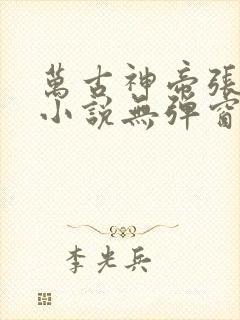 萬古神帝張
小說無彈窗
李光兵